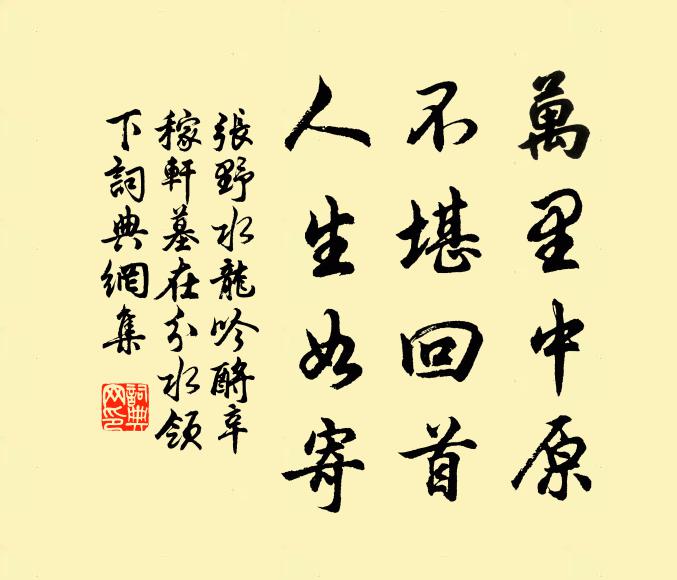 萬里中原
不堪回首
人生如寄
張野水龍吟酹辛
稼軒墓在分水領
下詞典網集
詞典
网印